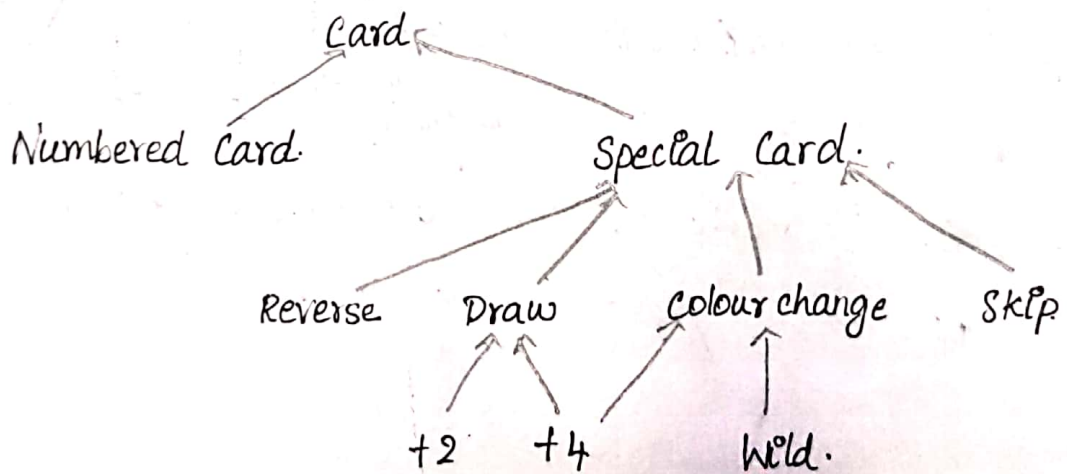 Card
Numbered Card.
Special Card.
Reverse Draw Colour change Skip.
+2 +4 Wild.